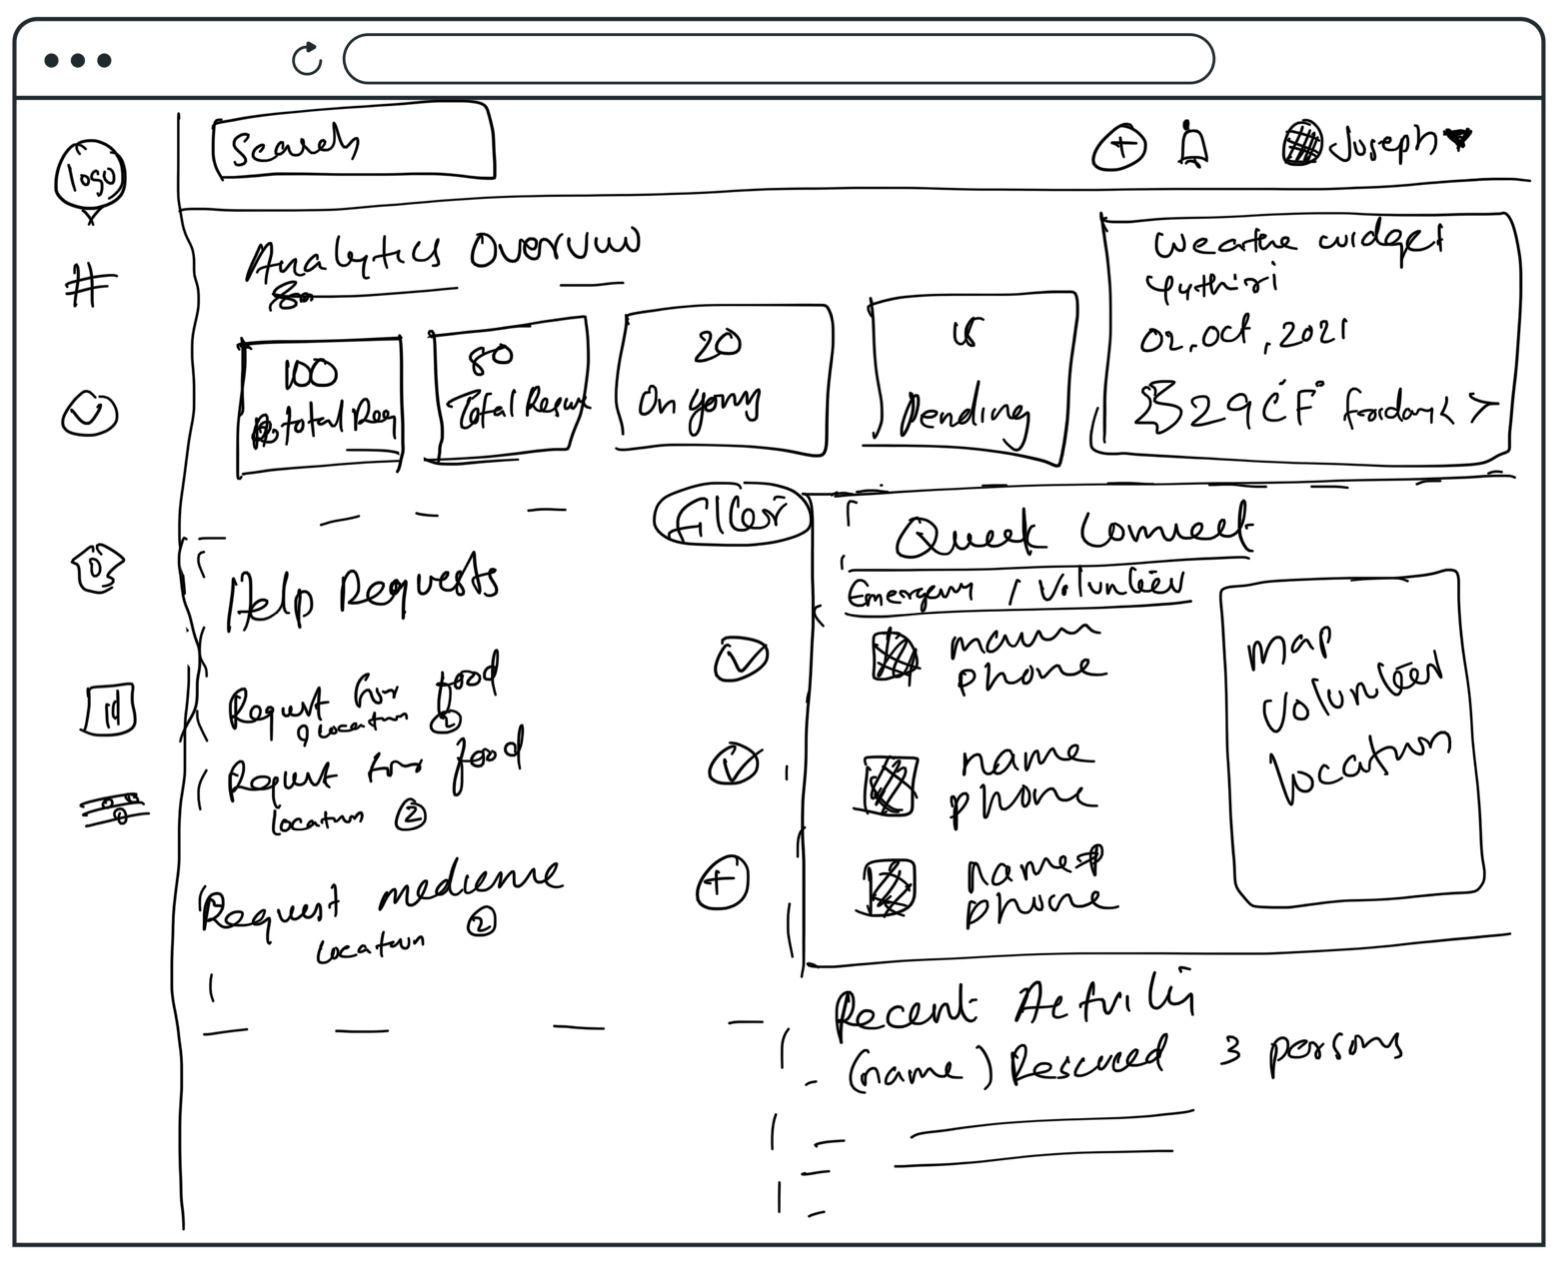 Search
Joseph
logo
Analytics Overview
100
total Req
80
Total Rescue
20
On going
Pending
widget
02.Oct, 2021
29 C F Friday < >
Filter
Help Requests
Request for food
location 2
Request for food
location 2
Request medicine
location 2
Quick Connect
Emergency / Volunteer
phone
name
phone
name
phone
map
volunteer
location
Recent Activity
(name) Rescued 3 persons